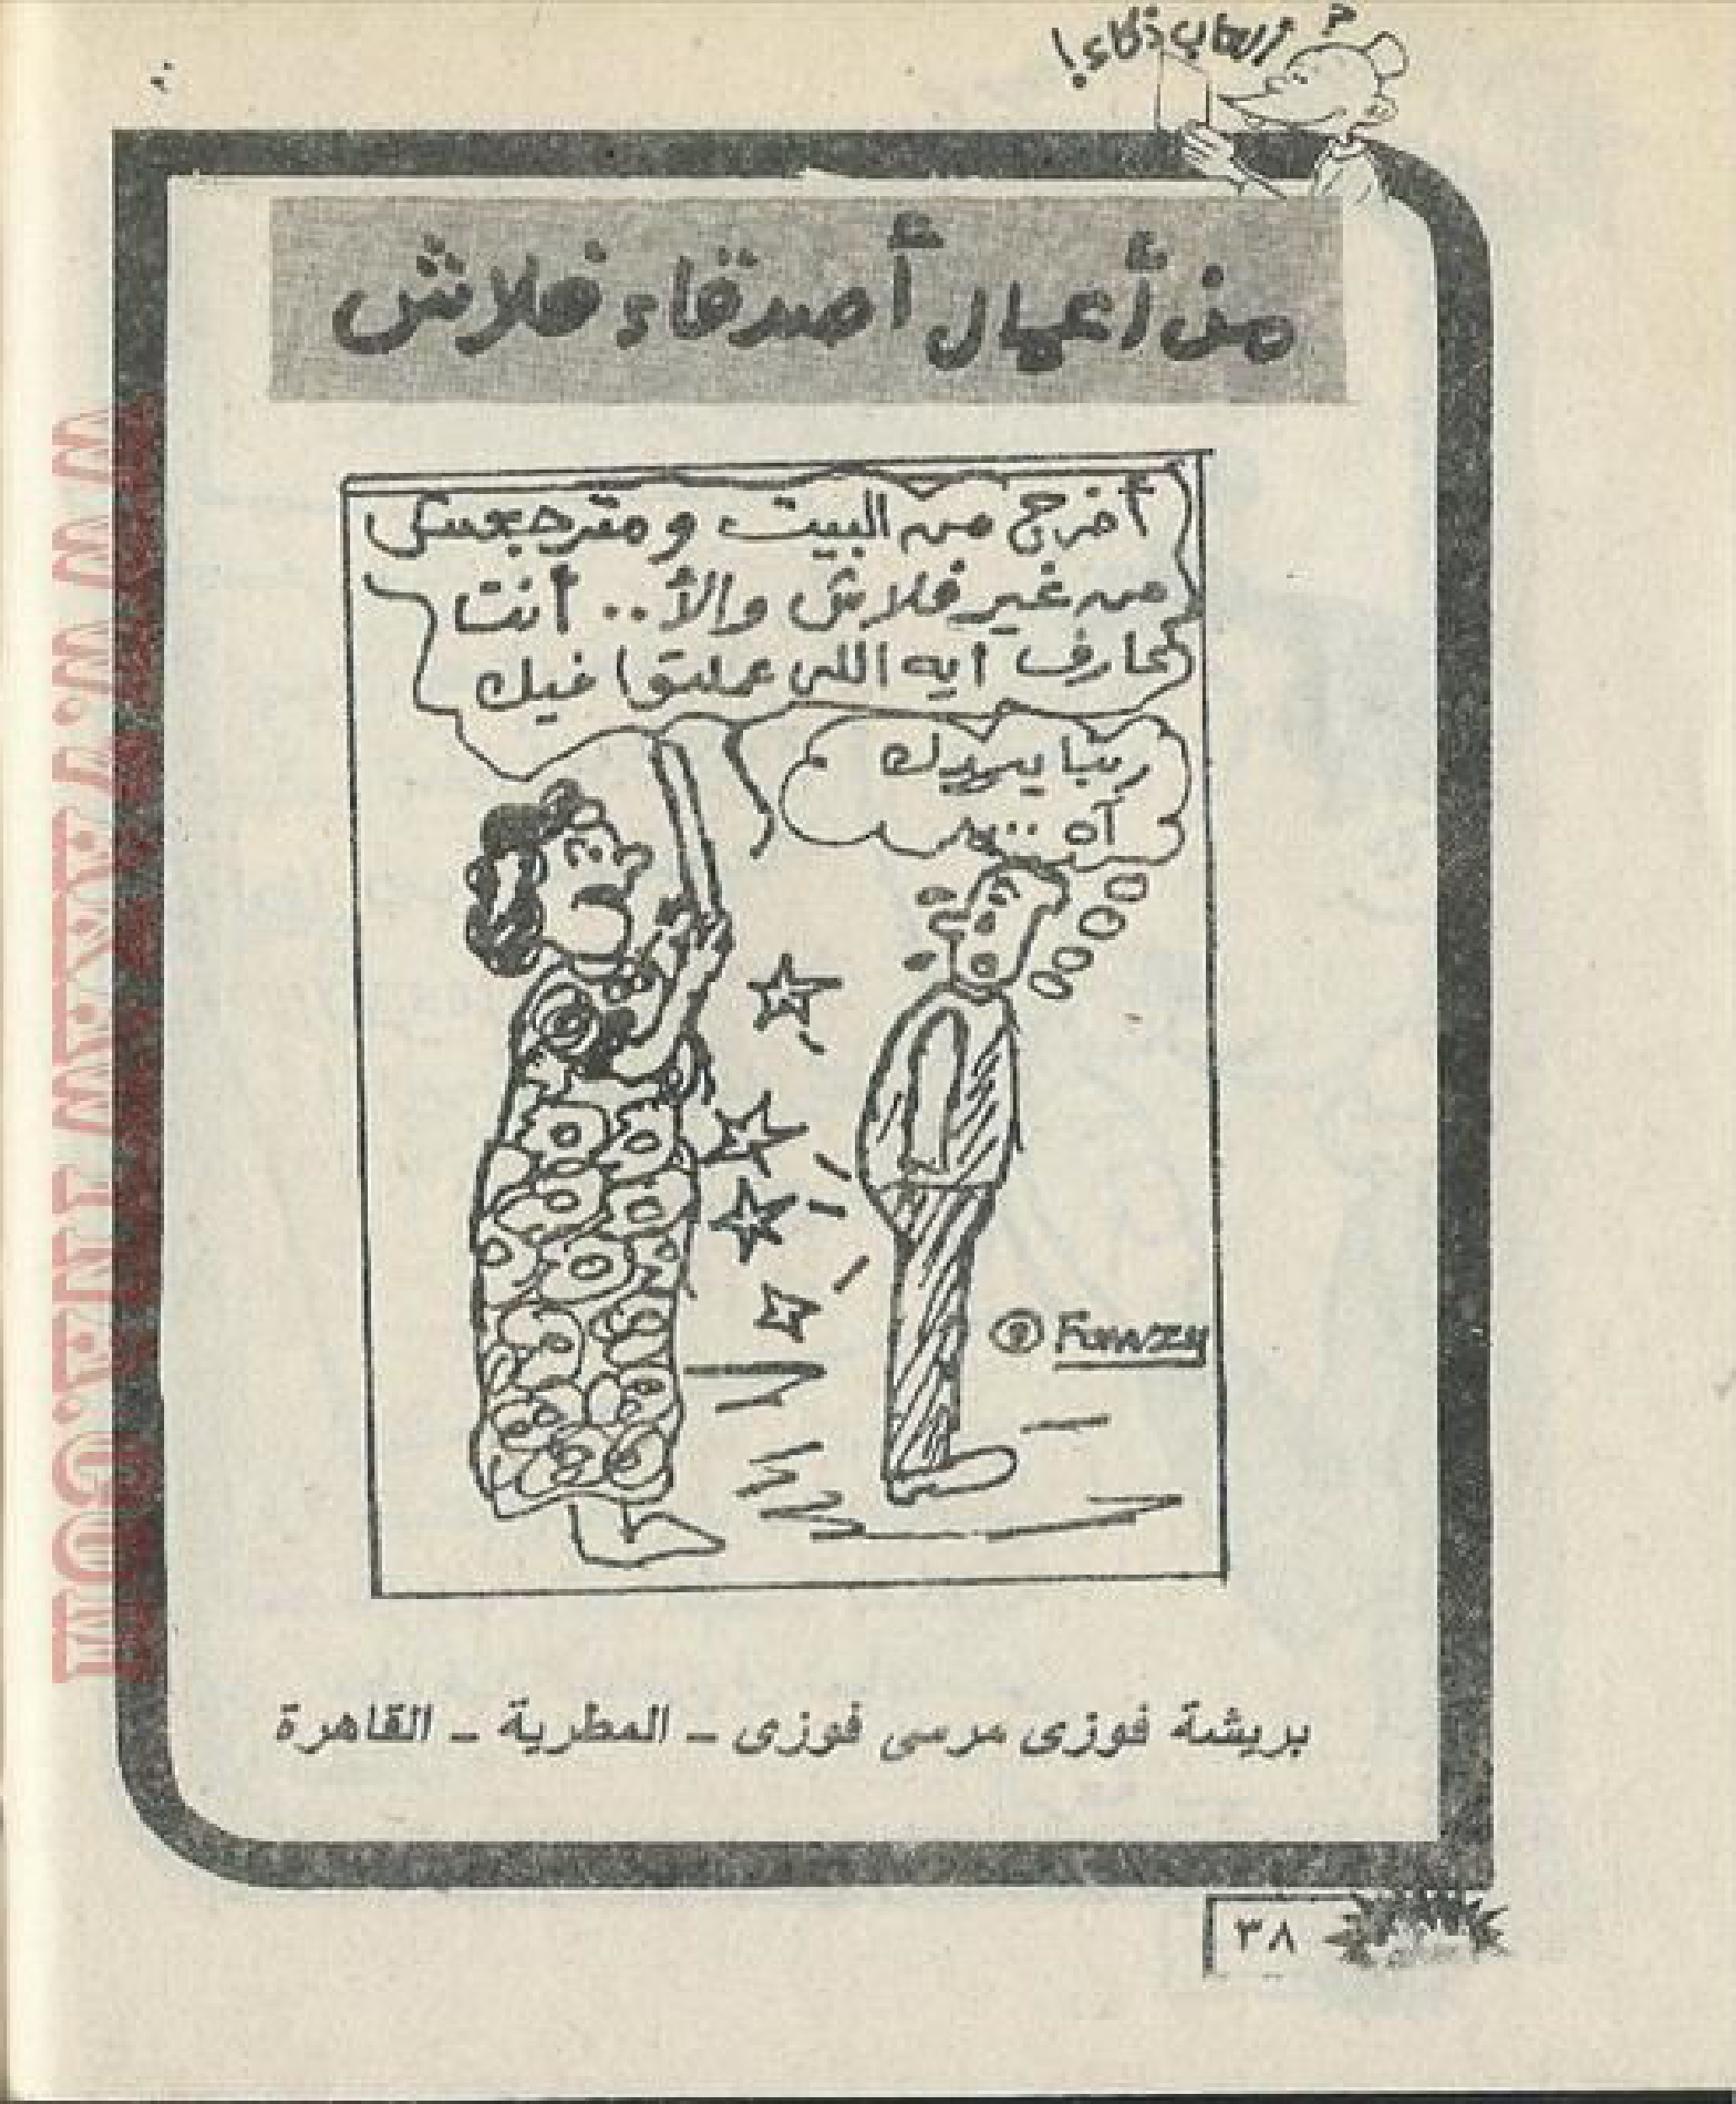 ألعاب ذكاء!
من أعمال أصدقاء فلاش
أخرج من البيت ومترجعش
من غير فلاش والأ.. أنت
عارف ايه اللى
فيك
ربنا يهدك
آه ..
Fawzy
بريشة فوزى مرسى فوزى ـ المطرية ـ القاهرة
٣٨